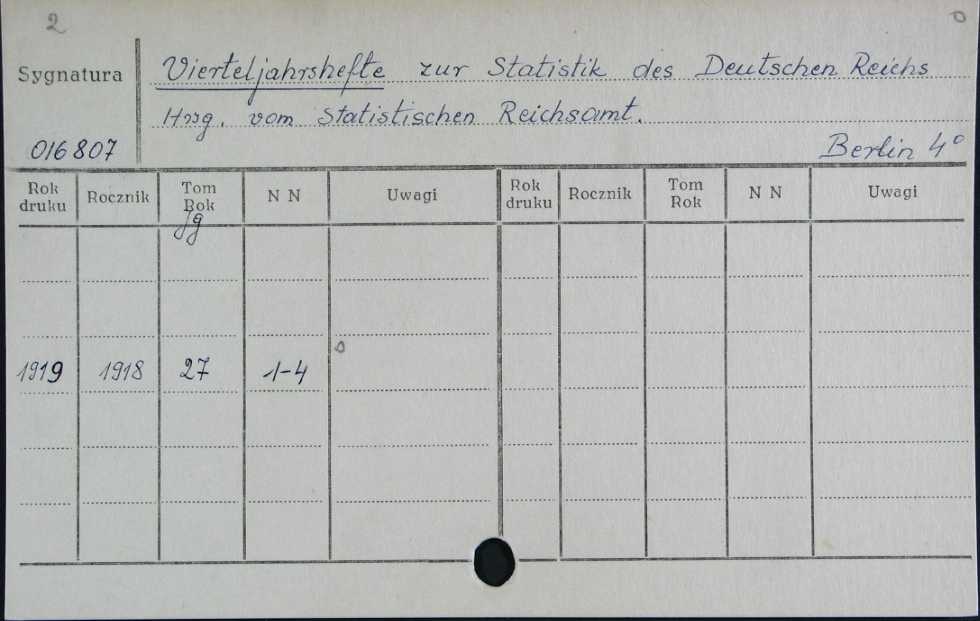 2
0
Sygnatura
Vierteljahrshefte zur Statistik des Deutschen Reichs
Hrsg. vom Statistischen Reichsamt.
016807
Berlin 4°
Rok druku Rocznik Tom Rok N N Uwagi Rok druku Rocznik Tom Rok N N Uwagi
Jg
0
1919 1918 27 1-4